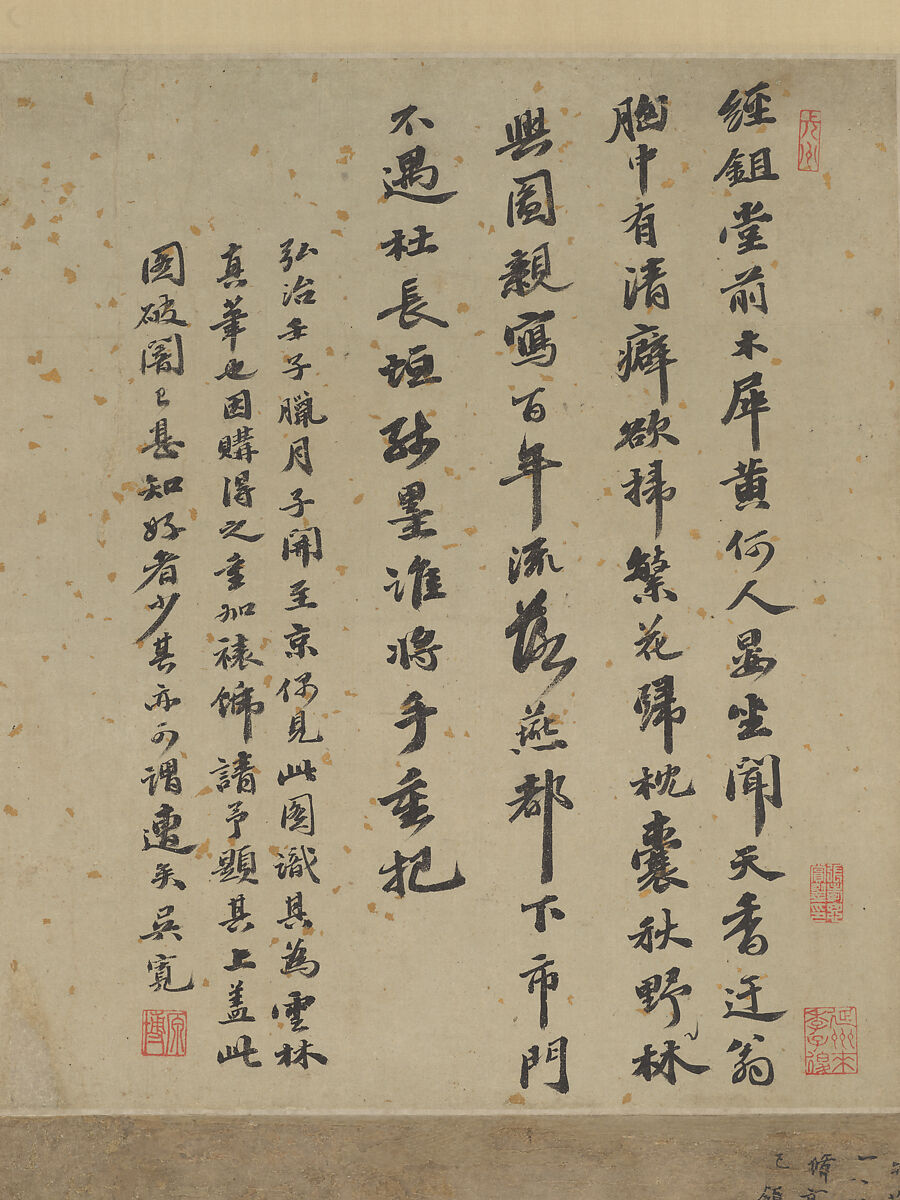 經鉏堂前木犀黃何人晏坐聞天香迂翁
胸中有清癖欲掃繁花歸枕囊秋野林
興圖親寫百年流落燕都下市門
不遇杜長垣殘墨誰將手重把
弘治壬子臘月子開至京偶見此圖識其為雲林
真筆也因購得之重加裱飾請予題其上蓋此
圖破闇已甚知好者少其亦可謂遭矣吳寬
原博
延州來季子後